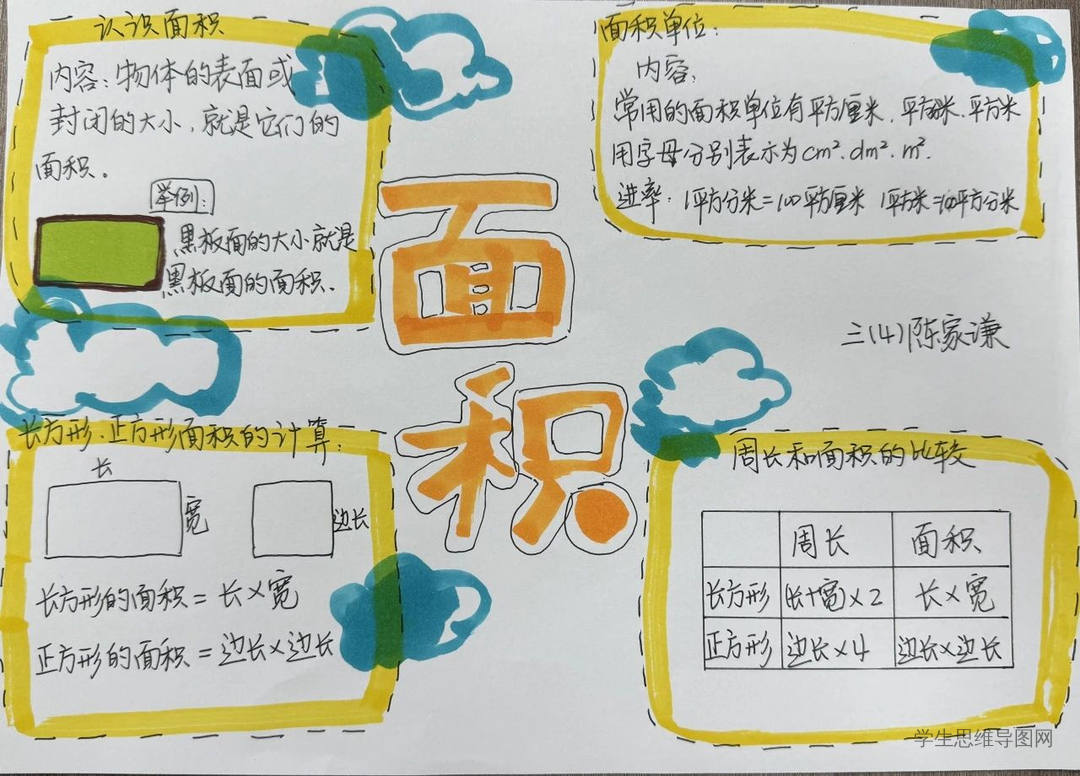 认识面积
内容：物体的表面或
封闭的大小，就是它们的
面积。
举例：
黑板面的大小就是
黑板面的面积．
面积单位：
内容，
常用的面积单位有平方厘米．平方分米．平方米
用字母分别表示为cm²．dm²．m².
进率．1平方分米=100平方厘米 1平方米=100平方分米
面
积
三(4)陈家谦
长方形．正方形面积的计算：
长
宽
边长
长方形的面积=长×宽
正方形的面积=边长×边长
周长和面积的比较
周长 面积
长方形 (长+宽)×2 长×宽
正方形 边长×4 边长×边长
学生思维导图网